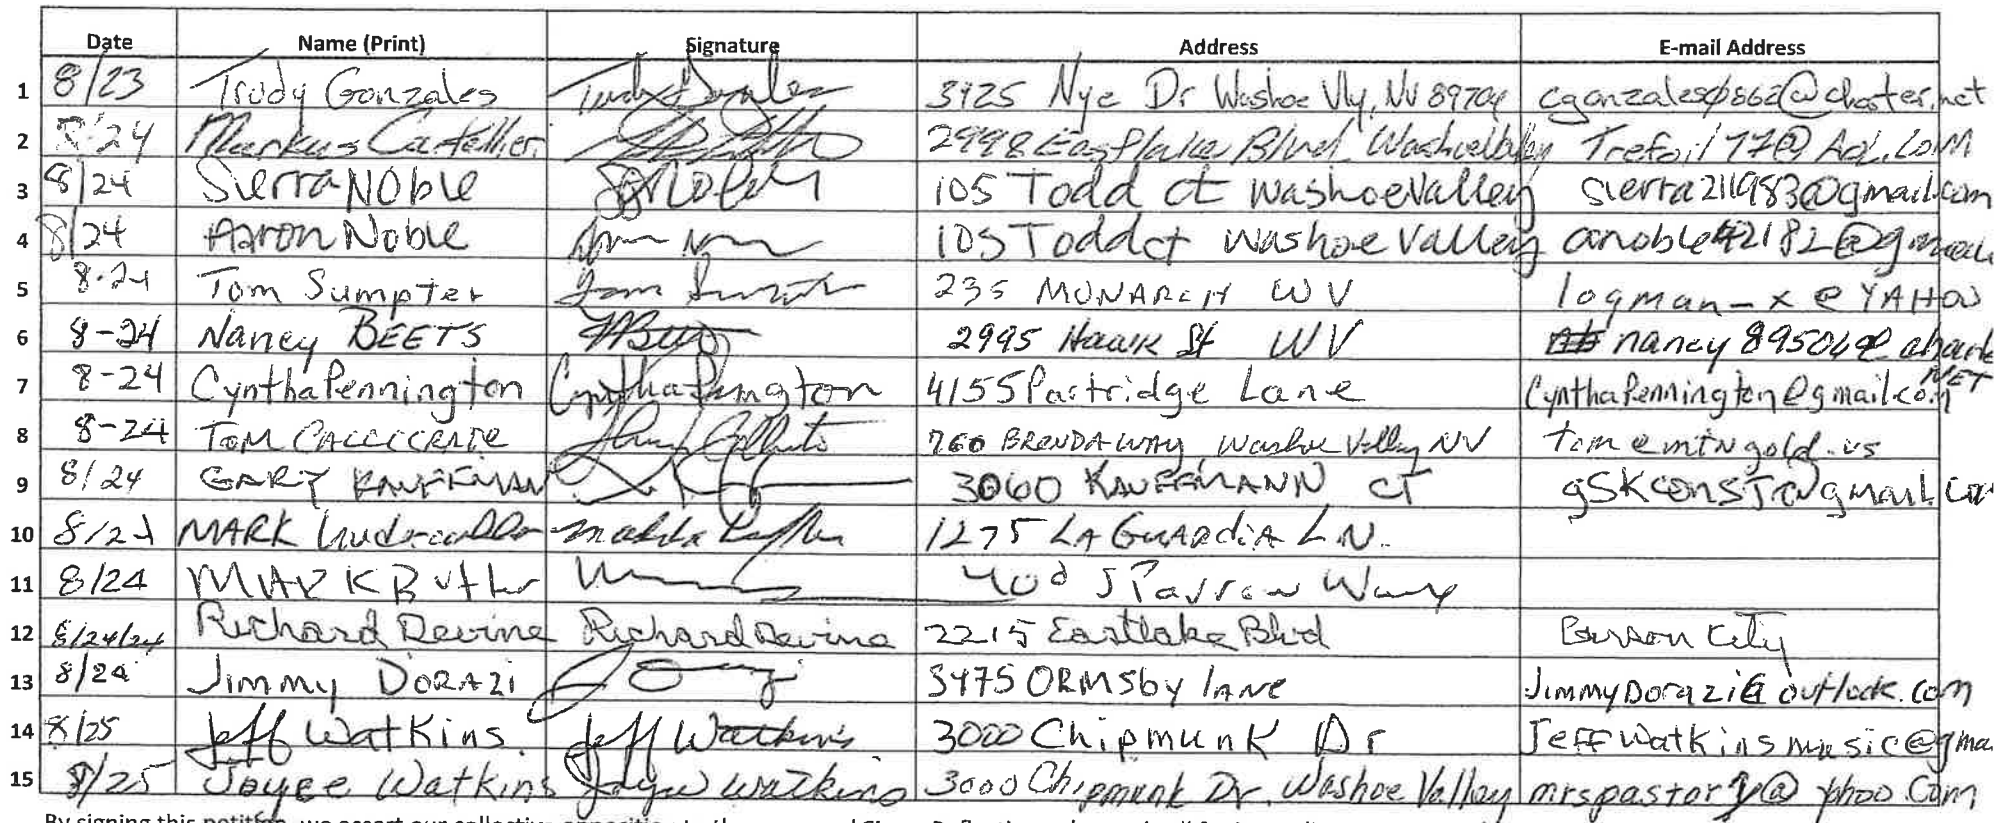 Date Name (Print) Signature Address E-mail Address
1 8/23 Trudy Gonzales Trudy Gonzales 3425 Nye Dr Washoe Vly, NV 89704 cgonzales0862@charter.net
2 8/24 Markus 2998 Eastlake Blvd Washoe Valley Trefoil77@AOL.COM
3 8/24 Sierra NOble 105 Todd ct Washoe Valley sierra211983@gmail.com
4 8/24 Aaron Noble 105 Todd ct Washoe Valley anoble42182@gmail
5 8-24 Tom Sumpter Tom Sumpter 235 MONARCH WV logman-x@YAHOO
6 8-24 Nancy BEETS 2995 Hawk St WV
7 8-24 Cyntha Pennington Cyntha Pennington 4155 Partridge Lane CynthaPennington@gmail.com
8 8-24 TOM 760 BRENDA WAY, Washoe Valley NV tom@mtngold.us
9 8/24 GARY KAUFFMAN 3060 KAUFFMANN CT gSKCONST@gmail.com
10 8/24 MARK 1275 LA GUARDIA LN.
11 8/24 MARK Butler Sparrow Way
12 8/24/24 Richard Devine Richard Devine 2215 Eastlake Blvd Carson City
13 8/24 Jimmy DORAZI 3475 ORMSby lANE JimmyDorazi@outlook.com
14 8/25 Jeff Watkins Jeff Watkins 3000 Chipmunk Dr JeffWatkinsmusic@gma
15 8/25 Joyce Watkins Joyce Watkins 3000 Chipmunk Dr. Washoe Valley mrspastorj@yahoo.com
By signing this petition, we assert our collective opposition to the